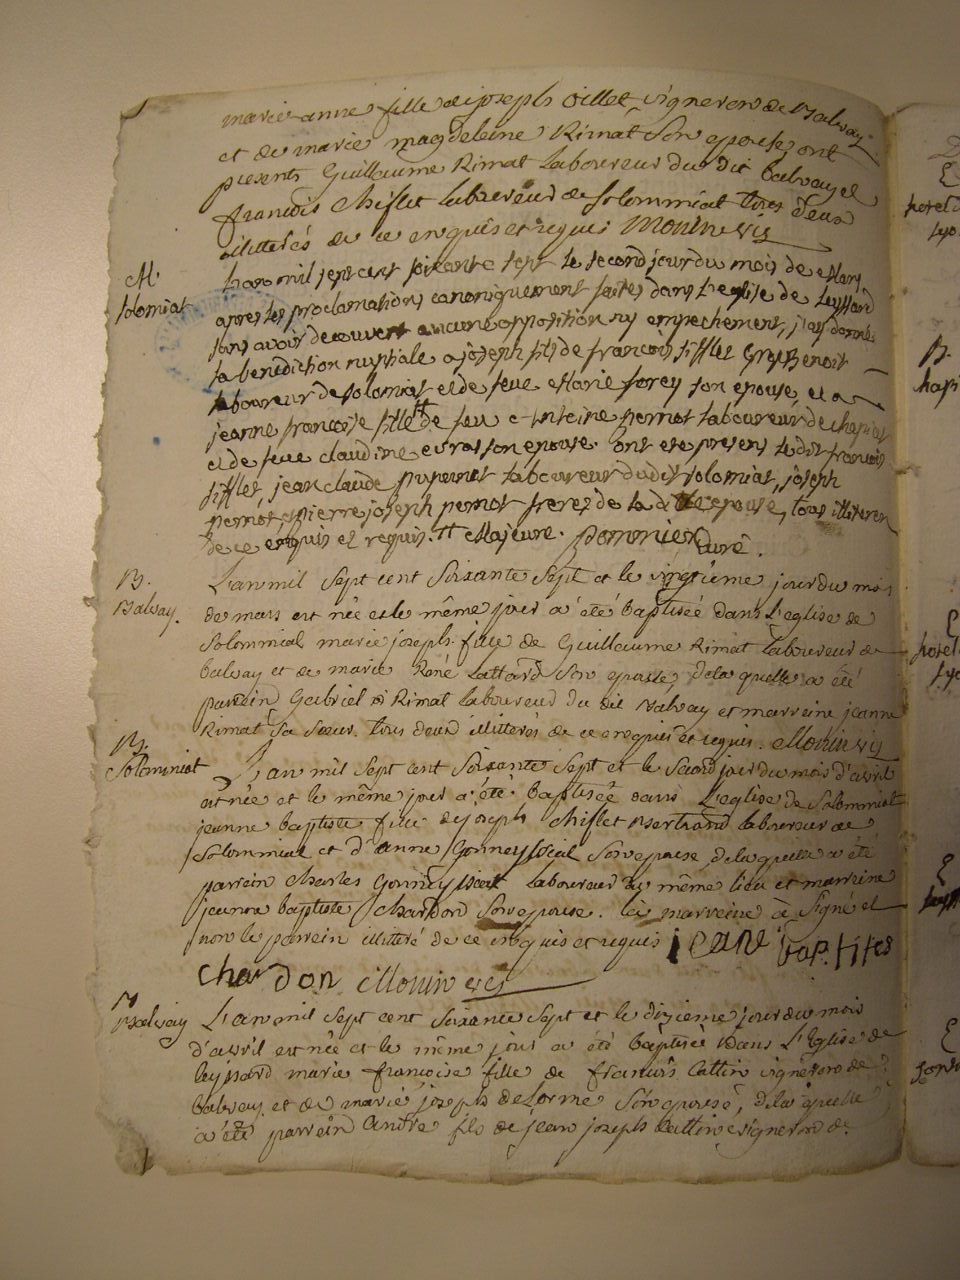 marie anne fille de joseph Oillet vigneron de Balvay
et de marie magdeleine Rimat Son epouse, ont
presents Guillaume Rimat Laboureur du dit balvay et
françois Chiflet Laboureur de Solommiat tous deux
illitterés de ce enquis et requis Monin vic
M.
solomiat
L'an mil sept cent soixante sept le second jour du mois de Mars
apres les proclamations canoniquement faites dans l'eglise de Leyssard
sans avoir decouvert aucune opposition ny empechement, j'ay donné
la benediction nuptiale a joseph fils de françois sifflet Benoit
laboureur de solomiat et de feue Marie forey son epouse, et a
jeanne françoise fille # de feu Anteine pernot laboureur de
et de feue claudine son epouse. ont eté presens ledit françois
sifflet, jean claude laboureur dudit solomiat, joseph
pernot et pierre joseph pernot freres de la ditte epouse, tous illiteres
de ce enquis et requis. # Majeure. Pommier curé.
B.
Balvay.
L'an mil Sept cent Soixante Sept et le vingtieme jour du mois
de mars est née et le même jour a été baptisée dans L'eglise de
Solommiat marie joseph fille de Guillaume Rimat Laboureur de
balvay et de marie René Lattard Son epouse, de la quelle a été
parrein Gabriel Rimat Laboureur du dit Balvay et marreine jeanne
Rimat Sa Sœur. Tous deux illitterés de ce enquis et requis. Monin vic
B.
Solommiat
L'an mil Sept cent Soixante Sept et le Second jour du mois d'avril
est née et le même jour a été baptisée dans L'eglise de Solommiat
jeanne baptiste fille de joseph Chiflet Bertrand laboureur de
Solommiat et d'anne Son epouse, de la quelle a été
parrein Charles laboureur du même lieu et marreine
jeanne baptiste Chardon Son epouse. la marreine a Signé et
non le parrein illitteré de ce enquis et requis jeane baptites
chardon Monin vic
B.
Balvay
L'an mil Sept cent Soixante Sept et le dixieme jour du mois
d'avril est née et le même jour a été baptisée dans L'Eglise de
leyssard marie françoise fille de françois Cattin vigneron de
balvay et de marie joseph delorme Son epouse, de la quelle
a été parrein André fils de jean joseph Cattin vigneron de